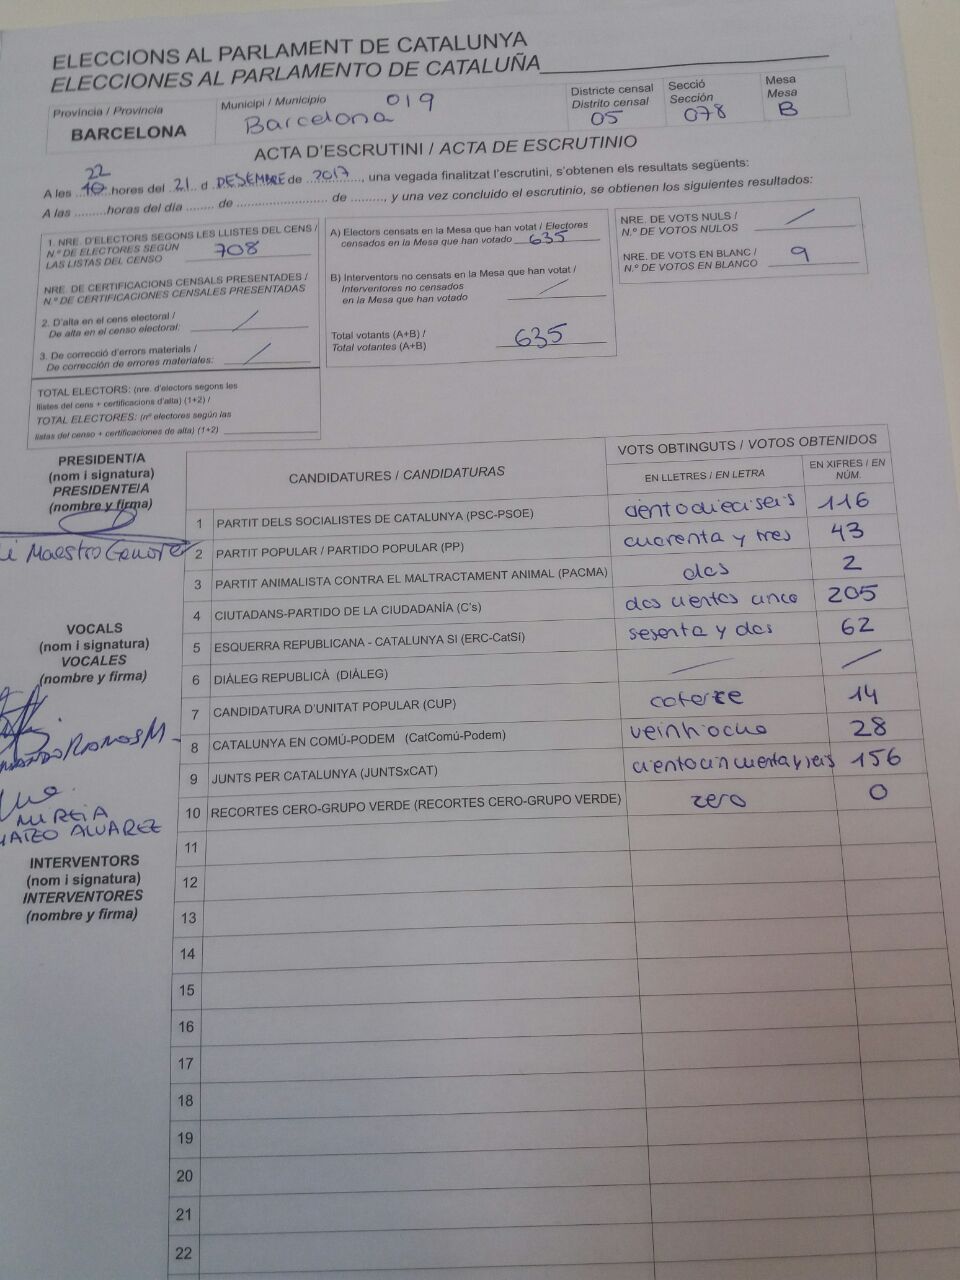 ELECCIONS AL PARLAMENT DE CATALUNYA
ELECCIONES AL PARLAMENTO DE CATALUÑA
Província / Provincia
BARCELONA
Municipi / Municipio 019
Barcelona
Districte censal
Distrito censal
05
Secció
Sección
078
Mesa
Mesa
B
ACTA D'ESCRUTINI / ACTA DE ESCRUTINIO
22
A les 10 hores del 21 d DESEMBRE de 2017, una vegada finalitzat l'escrutini, s'obtenen els resultats següents:
A las .........horas del día ........ de .......................... de ........., y una vez concluido el escrutinio, se obtienen los siguientes resultados:
1. NRE. D'ELECTORS SEGONS LES LLISTES DEL CENS /
N.º DE ELECTORES SEGÚN
LAS LISTAS DEL CENSO 708
NRE. DE CERTIFICACIONS CENSALS PRESENTADES /
N.º DE CERTIFICACIONES CENSALES PRESENTADAS
2. D'alta en el cens electoral /
De alta en el censo electoral: /
3. De correcció d'errors materials /
De corrección de errores materiales: /
TOTAL ELECTORS: (nre. d'electors segons les
llistes del cens + certificacions d'alta) (1+2) /
TOTAL ELECTORES: (nº electores según las
listas del censo + certificaciones de alta) (1+2)
A) Electors censats en la Mesa que han votat / Electores
censados en la Mesa que han votado 635
B) Interventors no censats en la Mesa que han votat /
Interventores no censados
en la Mesa que han votado /
Total votants (A+B) /
Total votantes (A+B) 635
NRE. DE VOTS NULS /
N.º DE VOTOS NULOS /
NRE. DE VOTS EN BLANC /
N.º DE VOTOS EN BLANCO 9
PRESIDENT/A
(nom i signatura)
PRESIDENTE/A
(nombre y firma)
Maestro
VOCALS
(nom i signatura)
VOCALES
(nombre y firma)
Ramos M.
MIREIA
MATEO ALVAREZ
INTERVENTORS
(nom i signatura)
INTERVENTORES
(nombre y firma)
CANDIDATURES / CANDIDATURAS
VOTS OBTINGUTS / VOTOS OBTENIDOS
EN LLETRES / EN LETRA
EN XIFRES / EN
NÚM.
1 PARTIT DELS SOCIALISTES DE CATALUNYA (PSC-PSOE) cientodieciseis 116
2 PARTIT POPULAR / PARTIDO POPULAR (PP) cuarenta y tres 43
3 PARTIT ANIMALISTA CONTRA EL MALTRACTAMENT ANIMAL (PACMA) dos 2
4 CIUTADANS-PARTIDO DE LA CIUDADANÍA (C's) dos cientos cinco 205
5 ESQUERRA REPUBLICANA - CATALUNYA SI (ERC-CatSí) sesenta y dos 62
6 DIÀLEG REPUBLICÀ (DIÀLEG) / /
7 CANDIDATURA D'UNITAT POPULAR (CUP) catorze 14
8 CATALUNYA EN COMÚ-PODEM (CatComú-Podem) veintiocho 28
9 JUNTS PER CATALUNYA (JUNTSxCAT) cientocincuentayseis 156
10 RECORTES CERO-GRUPO VERDE (RECORTES CERO-GRUPO VERDE) zero 0
11
12
13
14
15
16
17
18
19
20
21
22